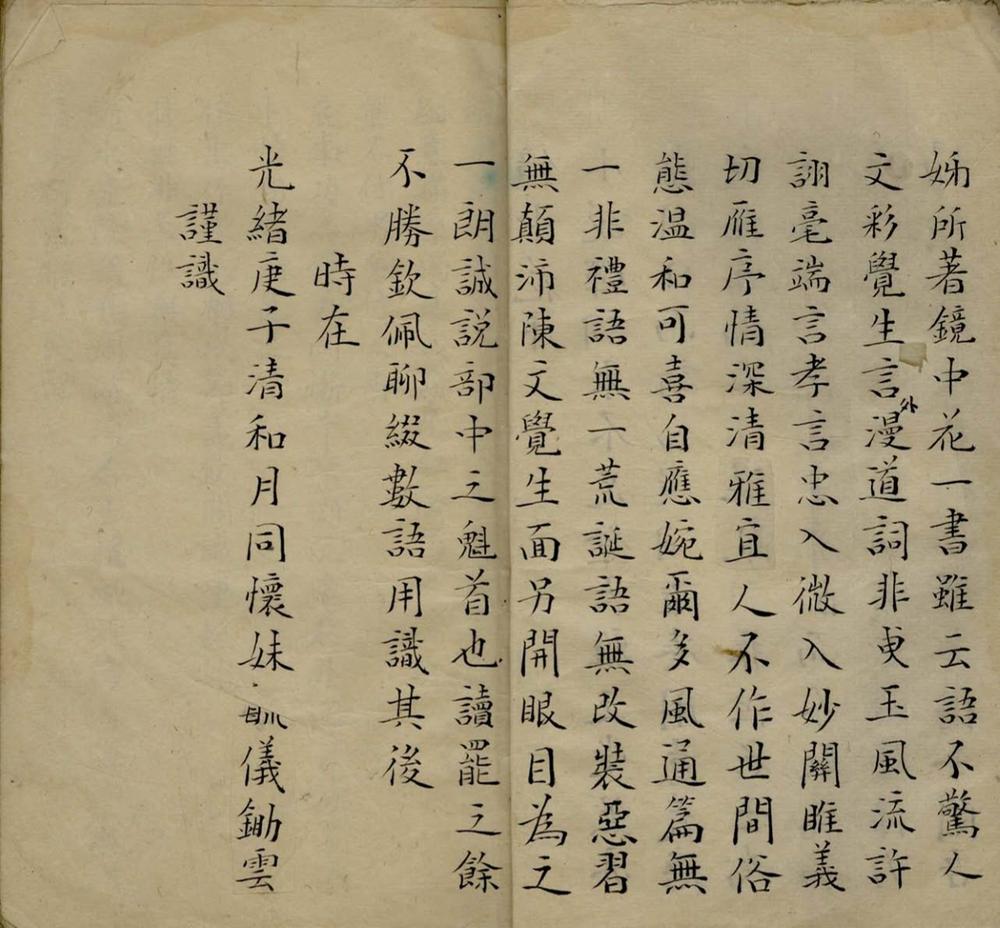 姊所著鏡中花一書雖云語不驚人
文彩覺生言外漫道詞非更玉風流許
詡毫端言孝言忠入微入妙關睢義
切雁序情深清雅宜人不作世間俗
態温和可喜自應婉爾多風通篇無
一非禮語無一荒誕語無改裝惡習
無顛沛陳文覺生面另開眼目為之
一朗誠説部中之魁首也讀罷之餘
不勝欽佩聊綴數語用識其後
時在
光緒庚子清和月同懷妹毓儀鋤雲
謹識